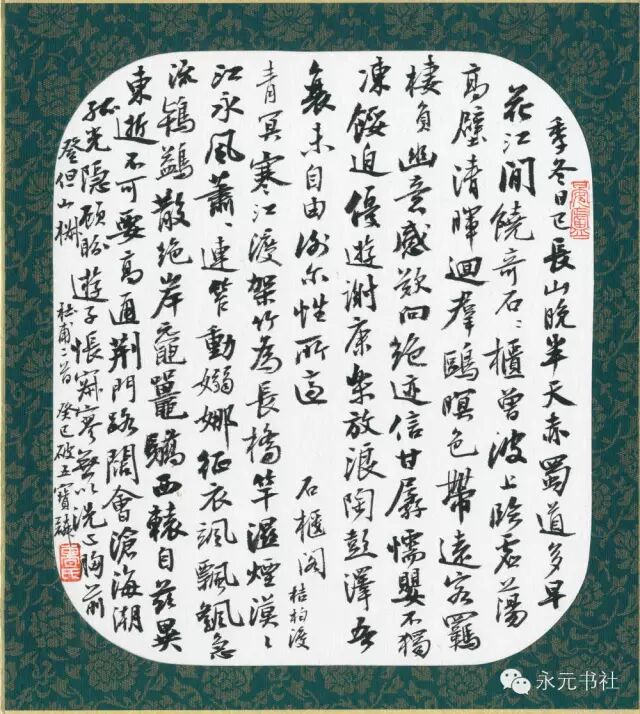 季冬日已長山晚半天赤蜀道多早
花江間饒奇石〻櫃曾波上臨虛蕩
高壁清暉迴羣鷗暝色帶遠客羈
棲負幽意感歎向絶迹信甘孱懦嬰不獨
凍餒迫優遊謝康樂放浪陶彭澤吾
衰未自由謝尔性所適
石櫃閣 桔柏渡
青冥寒江渡架竹為長橋竿濕煙漠〻
江永風蕭〻連笮動嫋娜征衣颯飄颻急
流鴇鷁散絶岸黿鼉驕西轅自茲異
東逝不可要高通荊門路闊會滄海潮
孤光隱顧盼遊子悵寂寥無以洗心胸前
登但山椒 杜甫二首 癸巳破五寶
永元书社